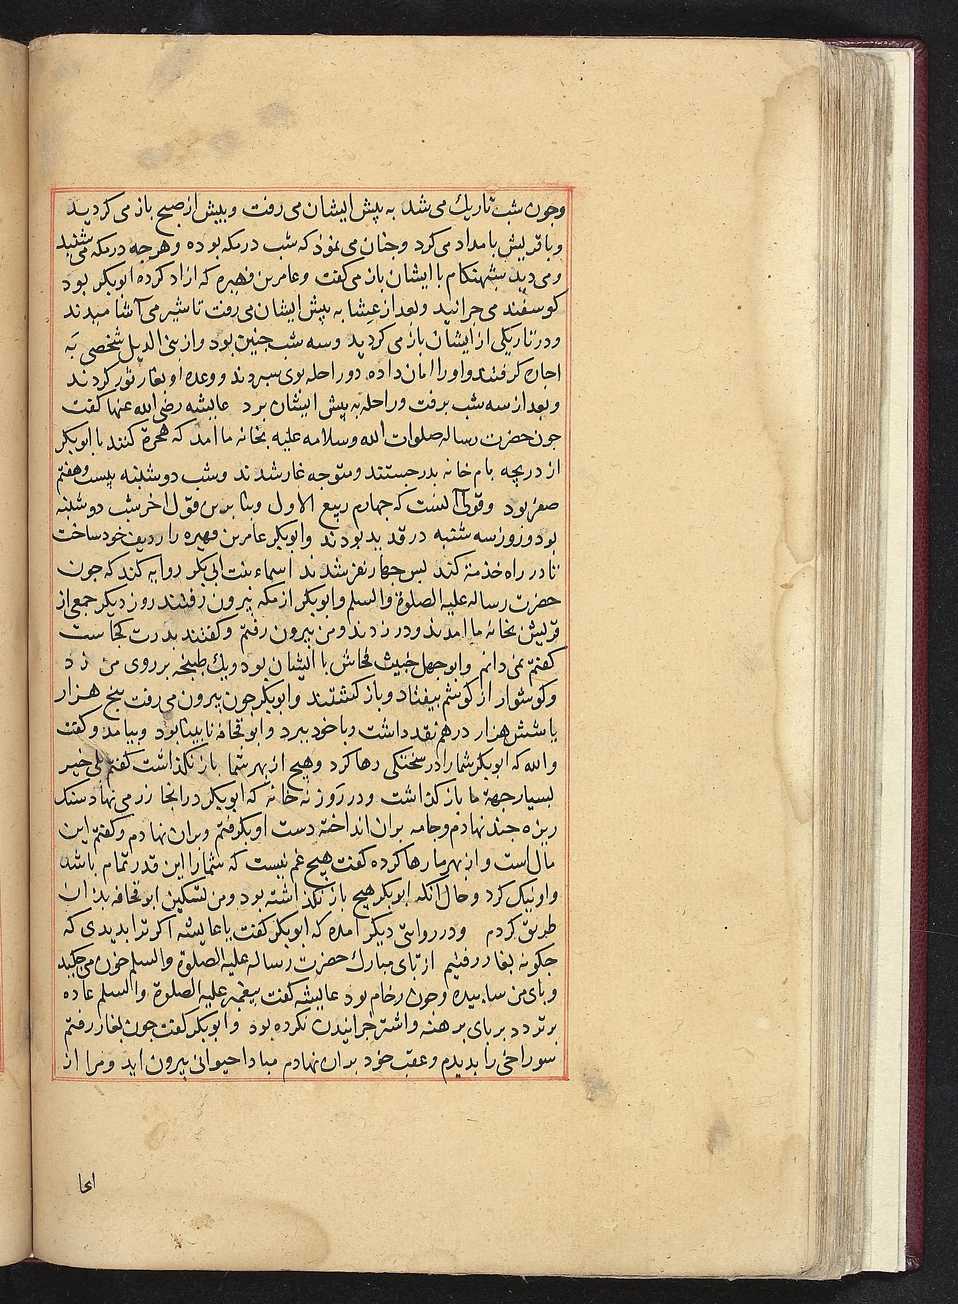 وجون شب تاریك می شد به پیش ایشان می رفت و پیش از صبح باز می کردید
و با قریش بامداد می کرد و جنان می نمود که شب در مکه بوده و هرجه در مکه می شنید
و می دید شبهنکام با ایشان باز می کفت و عامر بن فهیره که ازاد کرده ابوبکر بود
کوسفند می جرانید و بعد از عشا به پیش ایشان می رفت تا شیر می آشامیدند
و در تاریکی از ایشان باز می کردید و سه شب جنین بود و از بنی الدیل شخصی به
اجاره کرفتند و او را امان داده دو راحله بوی سبردند و وعده او بغار ثور کردند
و بعد از سه شب برفت و راحله به پیش ایشان برد عایشه رضی الله عنها کفت
جون حضرت رساله صلوات الله و سلامه علیه بخانه ما امد که هجرة کنند با ابوبکر
از دریجه بام خانه بدر جستند و متوجه غار شدند و شب دوشنبه بیست و هفتم
صفر بود و قولی آنست که جهارم ربیع الاول و بنا برین قول اخر شب دوشنبه
بود و روز سه شنبه در قدید بودند و ابوبکر عامر بن فهیره را ردیف خود ساخت
تا در راه خذمة کند بس جهار نفر شدند اسماء بنت ابی بکر روایه کند که جون
حضرت رساله علیه الصلوة والسلم و ابوبکر از مکه بیرون رفتند روز دیکر جمعی از
قریش بخانه ما امدند و در زدند و من بیرون رفتم و کفتند بدرت کجاست
کفتم نمی دانم و ابوجهل خبیث فحاش با ایشان بود و یك طبنجه بر روی من زد
و کوشوار از کوشم بیفتاد و باز کشتند و ابوبکر جون بیرون می رفت بنج هزار
یا شش هزار درهم نقد داشت و با خود ببرد و ابو قحافه نابینا بود و بیامد و کفت
والله که ابوبکر شما را در سختکی رها کرد و هیج از بهر شما باز نکذاشت کفتم بلی خیر
بسیار جهة ما باز کذاشت و در روزنه خانه که ابوبکر در انجا زر می نهاد سنك
ریزه جند نهادم و جامه بران انداخته دست او بکرفتم و بران نهادم و کفتم این
مال است و از بهر ما رها کرده کفت هیج غم نیست که شما را این قدر تمام باشد
و او نیك کرد و حال آنکه ابوبکر هیج باز نکذاشته بود و من تسکین ابو قحافه بذان
طریق کردم و در روایتی دیکر آمده که ابوبکر کفت یا عایشه اکر ترا بدیدی که
جکونه بغار رفتیم از بای مبارك حضرت رساله علیه الصلوة والسلم خون می جکید
و بای من ساییده وجون رخام بود عایشه کفت بیغمبر علیه الصلوة والسلم عاده
بر تردد بر بای برهنه و اشتر جرانیدن نکرده بود و ابوبکر کفت جون بغار رفتم
سوراخی را بدیدم و عقب خود بران نهادم مبادا حیوانی بیرون اید و مرا از
انجا